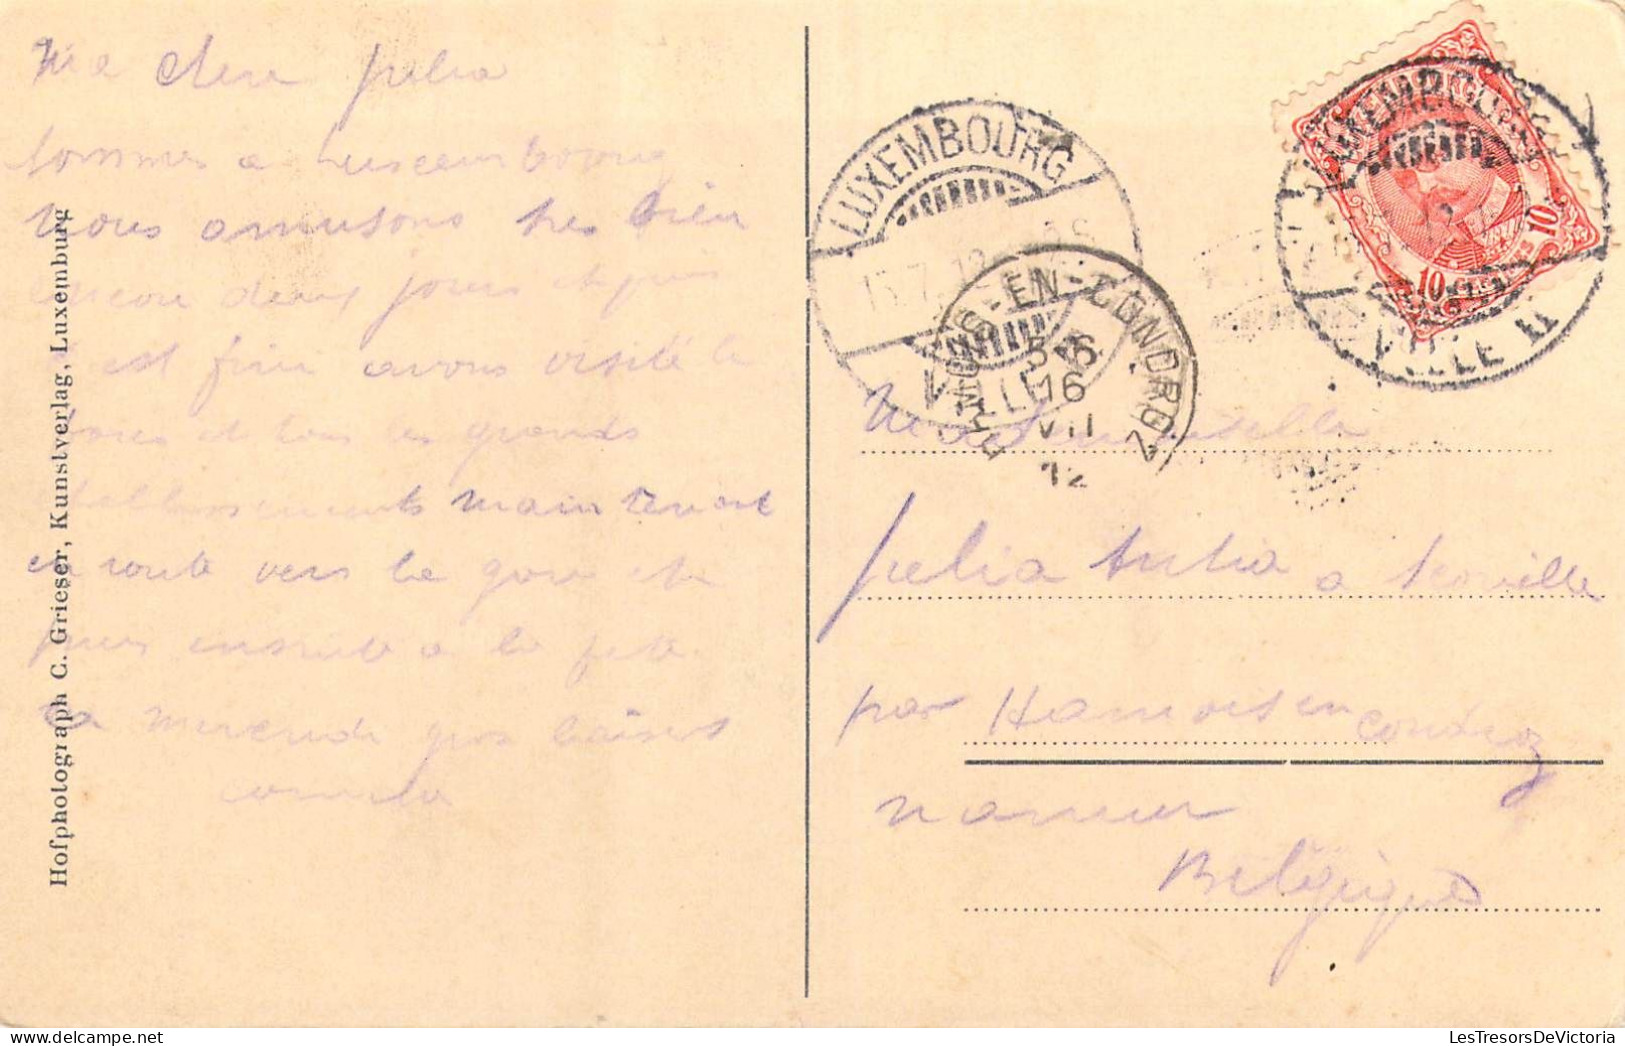 Ma chere Julia
sommes a Luxcembourg
nous amusons tres bien
encore deux jours et puis
est fini avons visité la
et tous les grands
etablissements maintenant
en route vers la gare et
puis ensuite a la fete
gros baisers
Hofphotograph C. Grieser, Kunstverlag, Luxemburg
LUXEMBOURG
VILLE
15.7.12
HAMOIS-EN-CONDROZ
16
VII
12
LUXEMBOURG
VILLE
10
10
Mademoiselle
Julia a
par Hamois en
condroz
namur
Belgique
LesTresorsDeVictoria